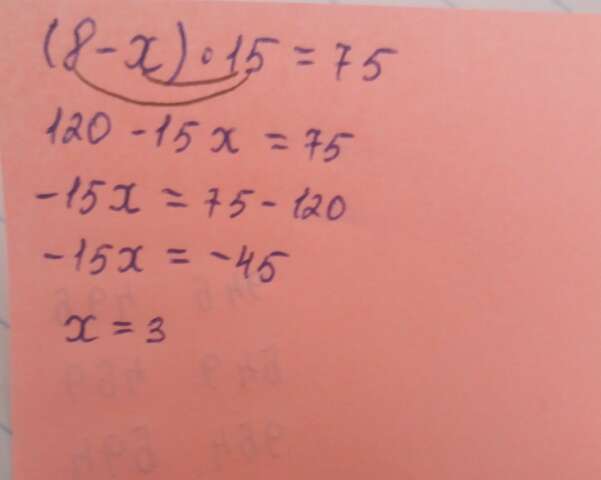 (8-x)·15=75
120-15x=75
-15x=75-120
-15x=-45
x=3